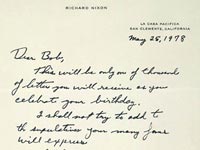 RICHARD NIXON
LA CASA PACIFICA
SAN CLEMENTE, CALIFORNIA
May 28, 1978
Dear Bob,
This will be only one of thousands
of letters you will receive as you
celebrate your birthday.
I shall not try to add to
the superlatives your many fans
will express